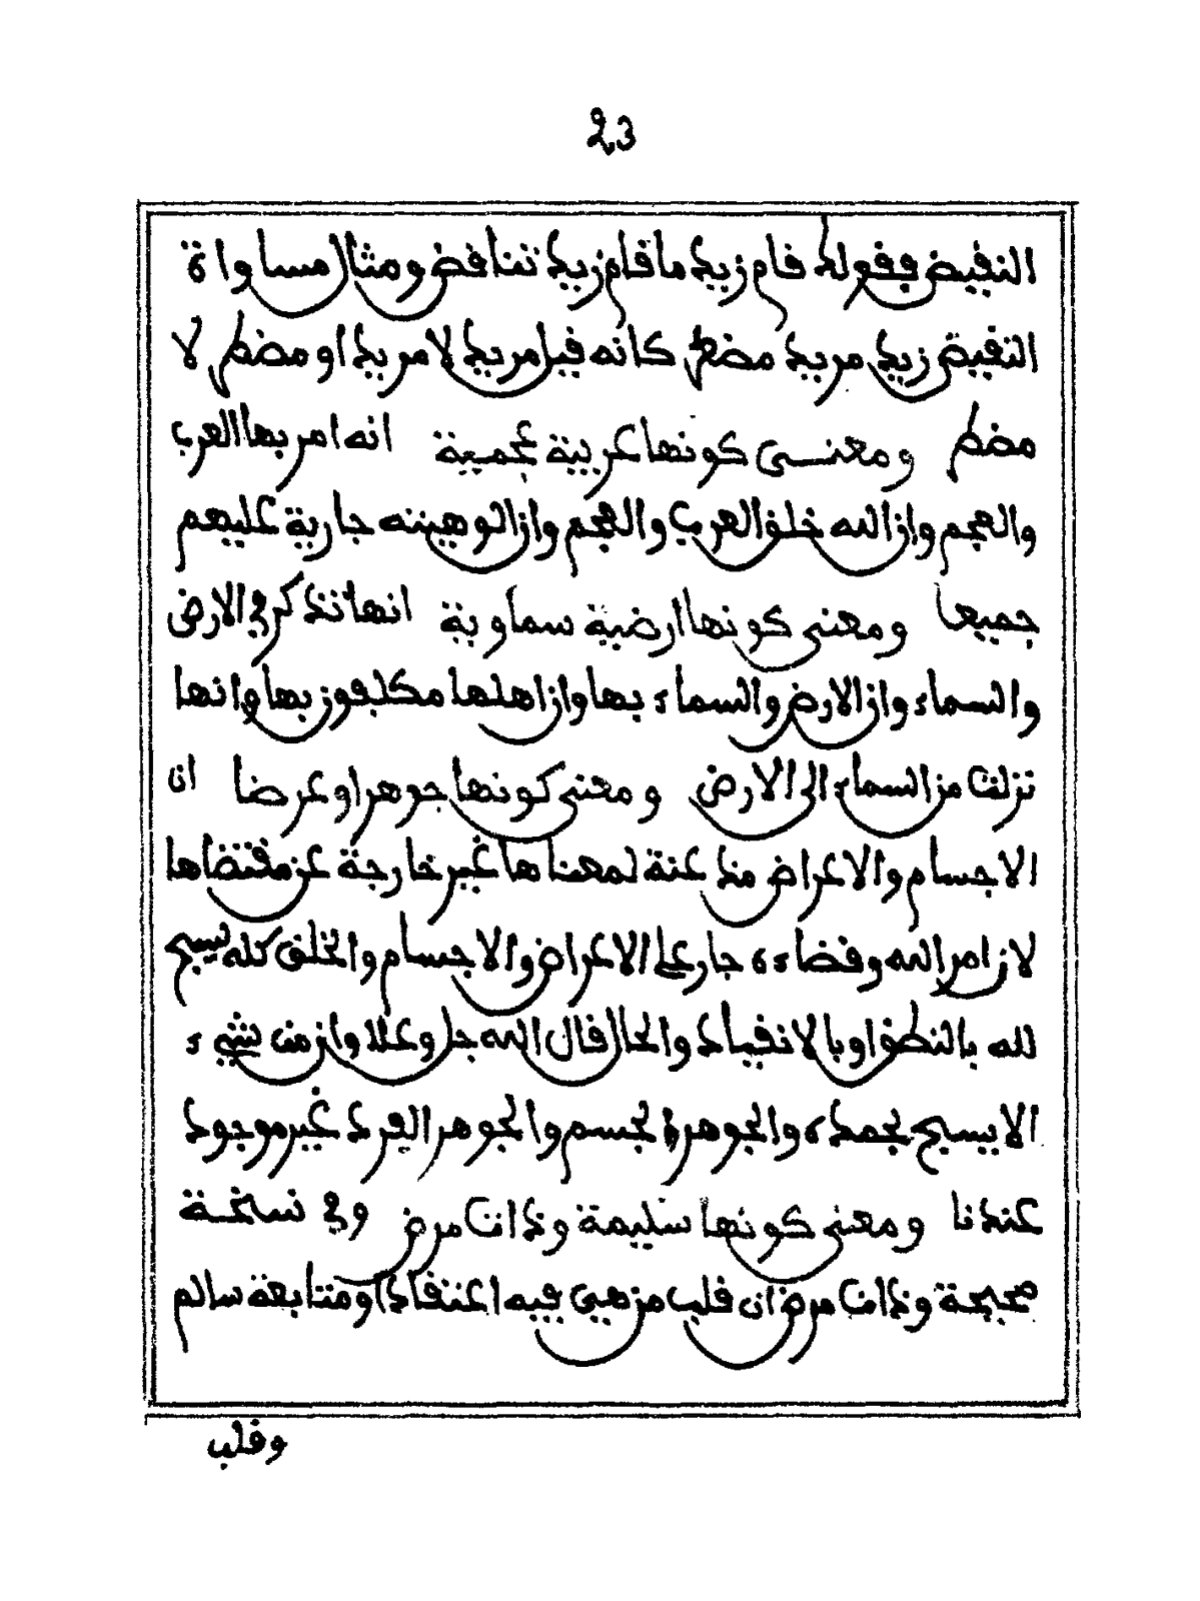 23
النقيض فقوله قام زيد ما قام زيد تناقض ومثال مساواة
النقيض زيد مريد مضطر كانه قيل مريد لا مريد او مضطر لا
مضطر ومعنى كونها عربية عجمية انه امر بها العرب
والعجم وان الله خلق العرب والعجم وان الوهيته جارية عليهم
جميعا ومعنى كونها ارضية سماوية انها تذكر في الارض
والسماء وان الارض والسماء بها وان اهلها مكلفون بها وانها
نزلت من السماء الى الارض ومعنى كونها جوهرا وعرضا ان
الاجسام والاعراض مذعنة لمعناها غير خارجة عن مقتضاها
لان امر الله وقضاءه جار على الاعراض والاجسام والخلق كله يسبح
لله بالنطق او بالانقياد والحال قال الله جل وعلا وان من شيء
الا يسبح بحمده والجوهر الجسم والجوهر الفرد غير موجود
عندنا ومعنى كونها سليمة وذات مرض وفي نسخة
صحيحة وذات مرض ان قلب من هي فيه اعتقادا ومتابعة سالم
وقلب